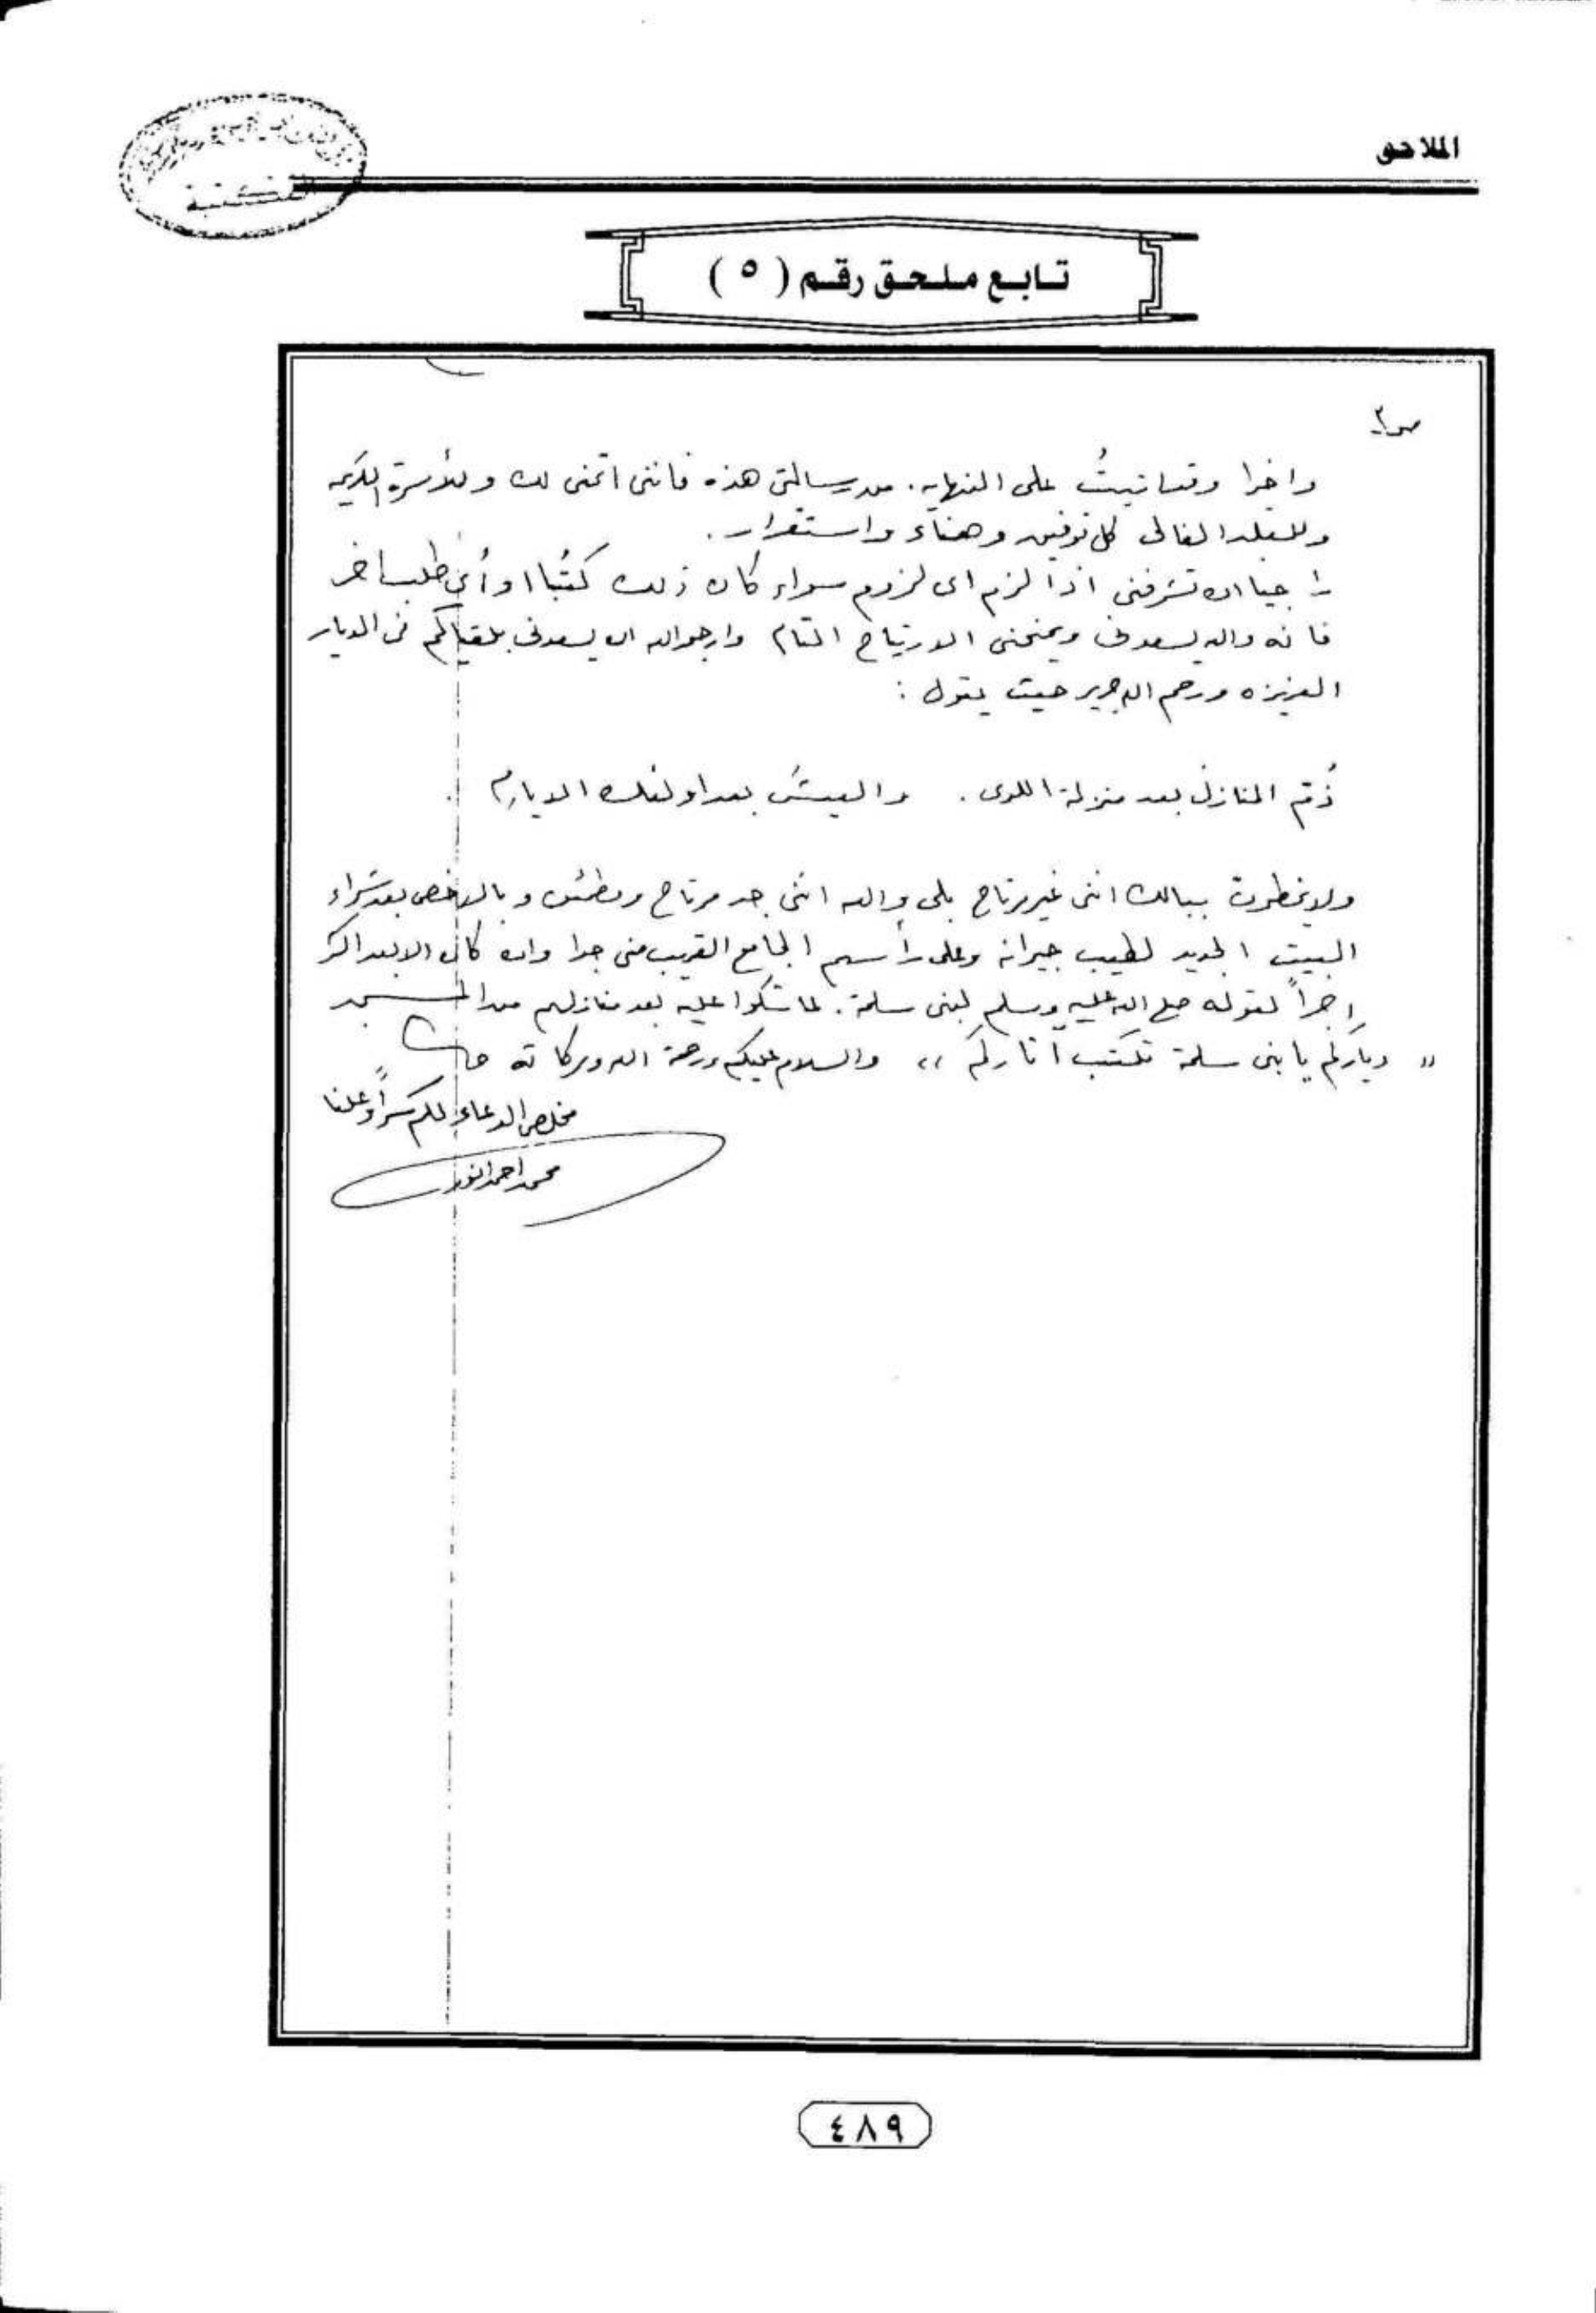 الملاحق
المكتبة
تابع ملحق رقم ( ٥ )
ص٣
واخيرا وقد اتيتُ على النهاية. من رسالتى هذه فاننى اتمنى لك وللأسرة الكريمه
وللبلد الغالى كل توفيق وهناء واستقرار.
راجيا ان تشرفنى اذا لزم اى لزوم سواء كان ذلك كتبًا او أى طلب اخر
فانه والله يسعدنى ويمنحنى الارتياح التام وارجو الله ان يسعدنى بلقياكم فى الديار
العزيزه ورحم الله جرير حيث يقول :
ذُم المنازل بعد منزلة اللوى . والعيشَ بعد اولئك الايام .
ولا يخطرن ببالك اننى غير مرتاح بلى والله اننى جد مرتاح ومطمئن وبالاخص بعد شراء
البيت الجديد لطيب جيرانه وعلى رأسهم الجامع القريب منى جدا وان كان الابعد اكثر
اجراً لقوله صلى الله عليه وسلم لبنى سلمة . لما شكوا عليه بعد منازلهم من المسجد
" دياركم يا بنى سلمة تكتب آثاركم ،، والسلام عليكم ورحمة الله وبركاته
مخلص الدعاء لكم سراً وعلنا
محمد احمد النور
٤٨٩